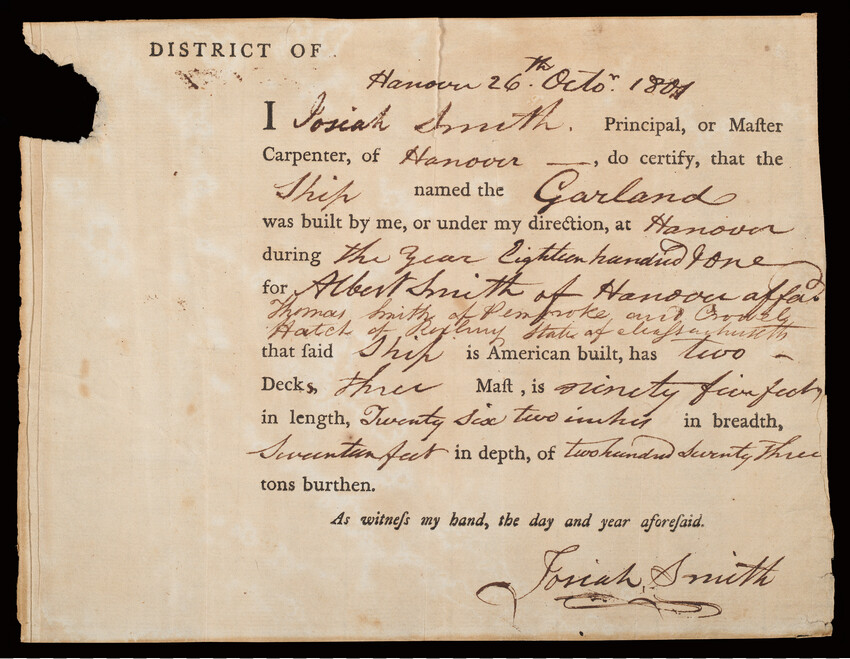 DISTRICT OF
Hanover 26th Octor 1801
I Josiah Smith. Principal, or Maſter
Carpenter, of Hanover —, do certify, that the
Ship named the Garland
was built by me, or under my direction, at Hanover
during the Year Eighteen hundred & one
for Albert Smith of Hanover affsd.
Thomas Smith of Pembroke, and Crowel
Hatch of Roxbury State of Massachusetts
that ſaid Ship is American built, has two –
Decks, three Maſt , is ninety five feet
in length, Twenty Six two inches in breadth,
Seventeen feet in depth, of two hundred Seventy three
tons burthen.
As witneſs my hand, the day and year aforeſaid.
Josiah Smith